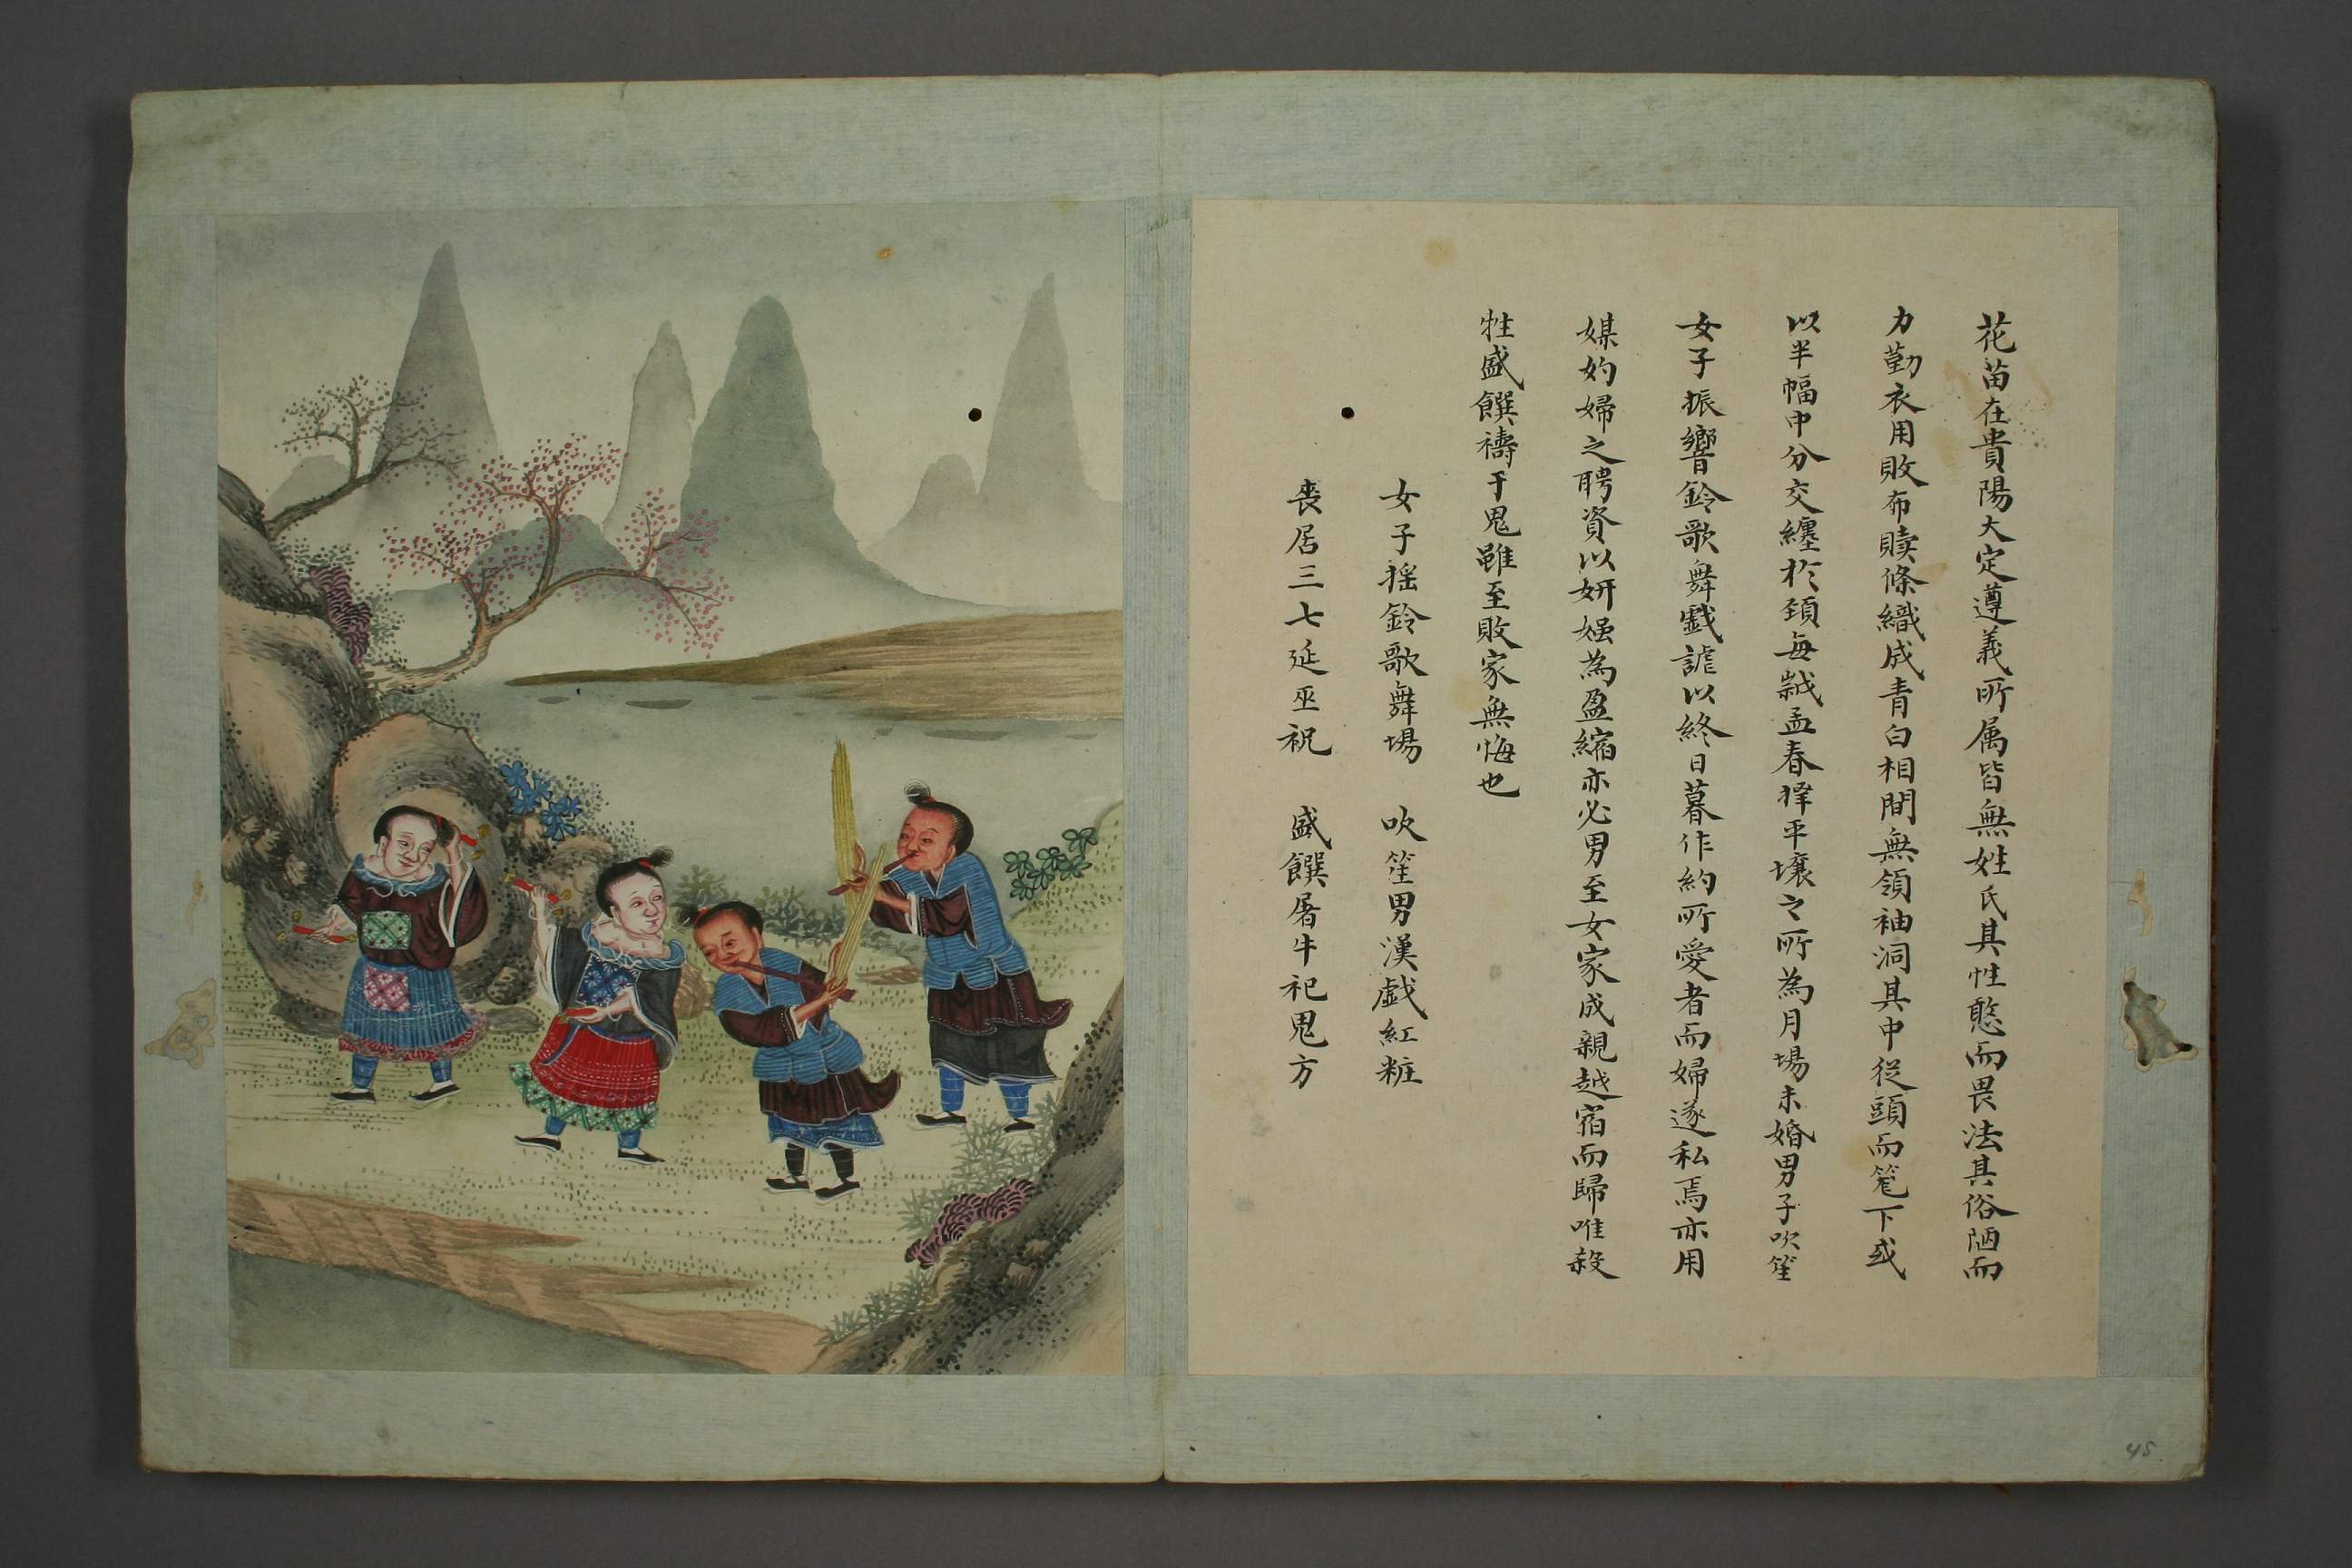 花苗在貴陽大定遵義所属皆無姓氏其性憨而畏法其俗陋而
力勤衣用敗布贖條織成青白相間無領袖洞其中從頭而笼下或
以半幅中分交纏於頚每嵗孟春擇平壤之所為月場未婚男子吹笙
女子振響鈴歌舞戯謔以終日暮作約所愛者而婦遂私焉亦用
媒妁婦之聘資以妍媸為盈縮亦必男至女家成親越宿而歸唯殺
牲盛饌禱于鬼雖至敗家無悔也
女子摇鈴歌舞場 吹笙男漢戯紅粧
丧居三七延巫祝 盛饌屠牛祀鬼方
45